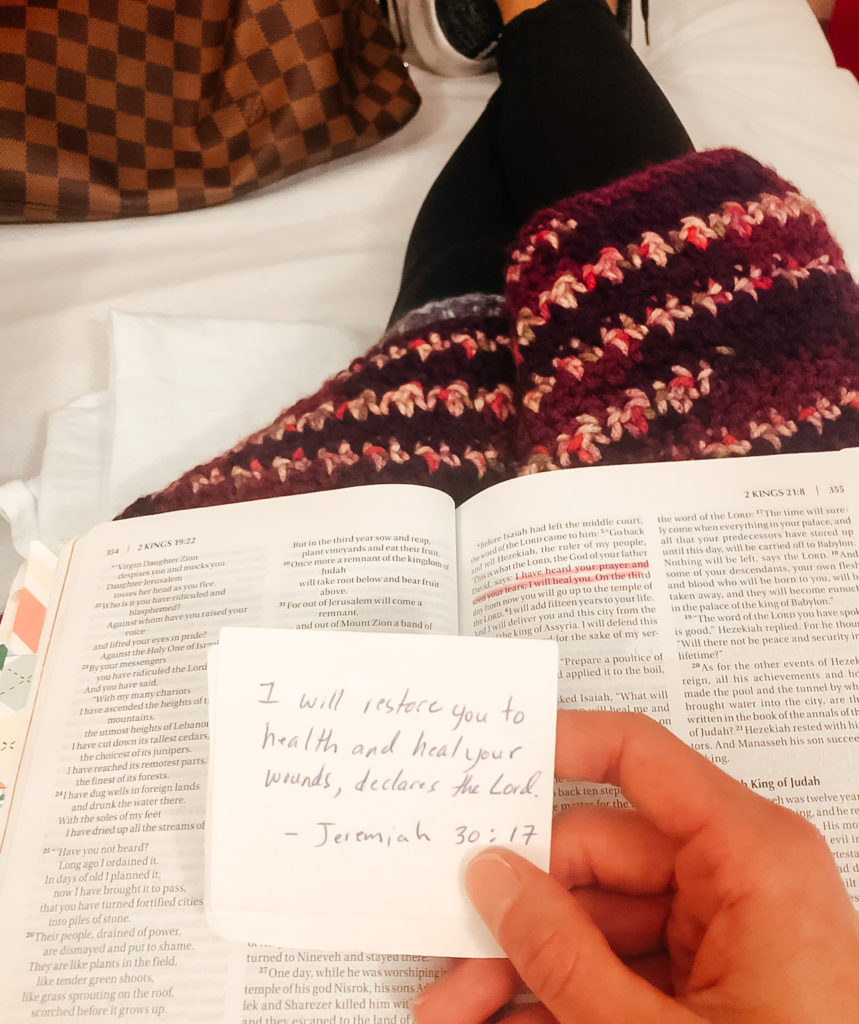 354 | 2 KINGS 19:22
"Virgin Daughter Zion
despises you and mocks you.
Daughter Jerusalem
tosses her head as you flee.
22 Who is it you have ridiculed and
blasphemed?
Against whom have you raised your
voice
and lifted your eyes in pride?
Against the Holy One of Israel
23 By your messengers
you have ridiculed the Lord
And you have said,
"With my many chariots
I have ascended the heights of
mountains,
the utmost heights of Lebanon
I have cut down its tallest cedars,
the choicest of its junipers.
I have reached its remotest parts,
the finest of its forests.
24 I have dug wells in foreign lands
and drunk the water there.
With the soles of my feet
I have dried up all the streams of
25 "'Have you not heard?
Long ago I ordained it.
In days of old I planned it;
now I have brought it to pass,
that you have turned fortified cities
into piles of stone.
26 Their people, drained of power,
are dismayed and put to shame.
They are like plants in the field,
like tender green shoots,
like grass sprouting on the roof,
scorched before it grows up.
But in the third year sow and reap,
plant vineyards and eat their fruit.
30 Once more a remnant of the kingdom of
Judah
will take root below and bear fruit
above.
31 For out of Jerusalem will come a
remnant,
and out of Mount Zion a band of
I will restore you to
health and heal your
wounds, declares the Lord.
- Jeremiah 30:17
turned to Nineveh and stayed there.
37 One day, while he was worshiping in
temple of his god Nisrok, his sons
lek and Sharezer killed him
and they escaped to the land of
2 KINGS 21:8 | 355
4 Before Isaiah had left the middle court,
the word of the LORD came to him: 5 "Go back
and tell Hezekiah, the ruler of my people,
'This is what the LORD, the God of your father
David, says: I have heard your prayer and
seen your tears; I will heal you. On the third
day from now you will go up to the temple of
the LORD. 6 I will add fifteen years to your life.
And I will deliver you and this city from the
king of Assyria. I will defend this
for the sake of my ser-
"Prepare a poultice of
applied it to the boil,
Isaiah, "What will
will heal me and
on
back ten steps
for the
the word of the LORD: 17 The time will sure-
ly come when everything in your palace, and
all that your predecessors have stored up
until this day, will be carried off to Babylon.
Nothing will be left, says the LORD. 18 And
some of your descendants, your own flesh
and blood who will be born to you, will be
taken away, and they will become eunuchs
in the palace of the king of Babylon."
19 "The word of the LORD you have spoken
is good," Hezekiah replied. For he thought,
"Will there not be peace and security in
lifetime?"
20 As for the other events of Hezekiah's
reign, all his achievements and how
made the pool and the tunnel by which
brought water into the city, are they
written in the book of the annals of the
of Judah? 21 Hezekiah rested with his
And Manasseh his son succeeded
king.
King of Judah
was twelve years
and he